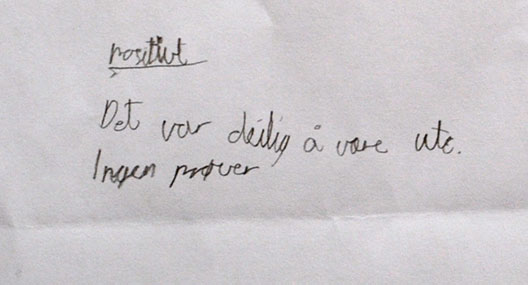 positivt
Det var deilig å være ute.
Ingen prøver